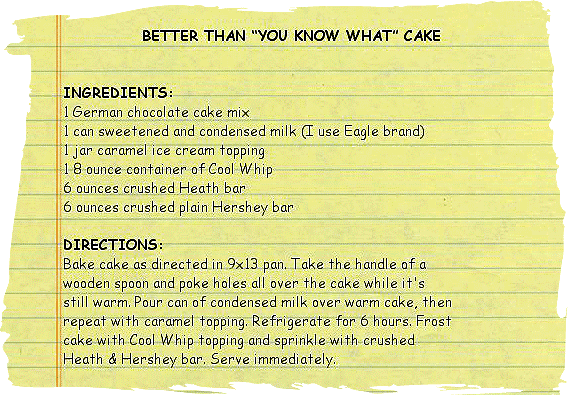 BETTER THAN “YOU KNOW WHAT” CAKE
INGREDIENTS:
1 German chocolate cake mix
1 can sweetened and condensed milk (I use Eagle brand)
1 jar caramel ice cream topping
1 8 ounce container of Cool Whip
6 ounces crushed Heath bar
6 ounces crushed plain Hershey bar
DIRECTIONS:
Bake cake as directed in 9x13 pan. Take the handle of a
wooden spoon and poke holes all over the cake while it's
still warm. Pour can of condensed milk over warm cake, then
repeat with caramel topping. Refrigerate for 6 hours. Frost
cake with Cool Whip topping and sprinkle with crushed
Heath & Hershey bar. Serve immediately.